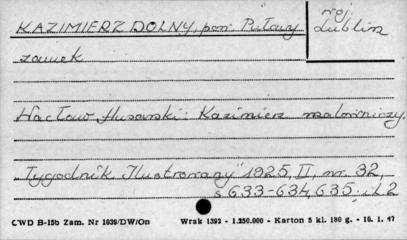 KAZIMIERZ DOLNY, pow. Puławy
woj. Lublin
zamek
Wacław Husarski: Kazimierz malowniczy.
"Tygodnik Ilustrowany" 1925, II, nr. 32,
s 633-634, 635. il. 2
CWD B-15b Zam. Nr 1039/DW/On Wrak 1392 - 1.250.000 - Karton 5 kl. 180 g. - 10. 1. 47